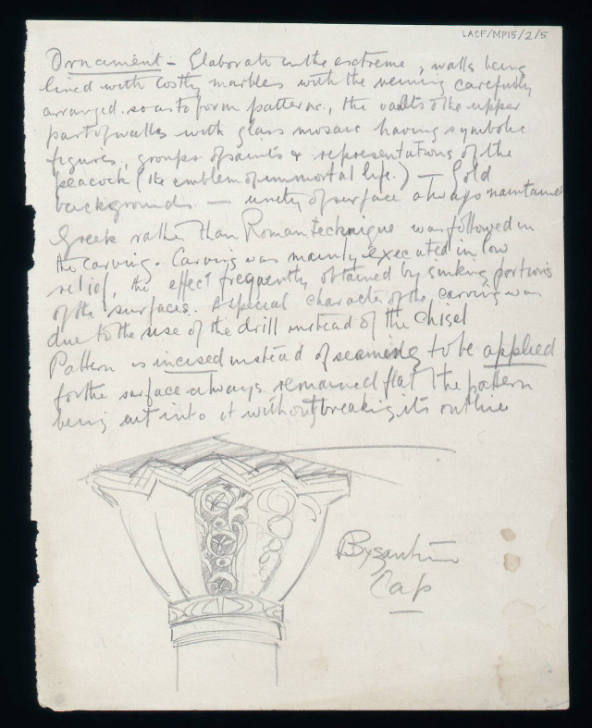 LACF/MP15/2/5
Ornament - Elaborate in the extreme, walls being
lined with costly marbles with the veining carefully
arranged so as to form patterns, the vaults & the upper
part of walls with glass mosaic having symbolic
figures, groups of saints & representations of the
peacock (the emblem of immortal life.) - Gold
backgrounds - unity of surface always maintained
Greek rather than Roman technique was followed in
the carving. Carving was mainly executed in low
relief, the effect frequently obtained by sinking portions
of the surfaces. A special character of the carving was
due to the use of the drill instead of the chisel
Pattern is incised instead of seeming to be applied
for the surface always remained flat the pattern
being cut into it without breaking its outline
Byzantine
Cap